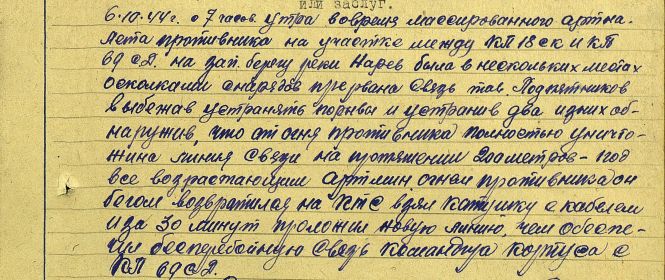 или заслуг.
6.10.44 г. с 7 часов утра вовремя массированного артна-
лета противника на участке между КП 18 ск и КП
69 с.д. на зап. берегу реки Нарев была в нескольких местах
осколками снарядов прервана связь тов. Подпятников
выбежав устранять порывы и устранив два из них об-
наружив, что от огня противника полностью уничто-
жина линия связи на протяжении 200 метров - под
все возрастающим артмин огнем противника он
бегом возвратился на ПТС взял катушку с кабелем
и за 30 минут проложил новую линию, чем обеспе-
чил бесперебойную связь командира корпуса с
КП 69 с.д.